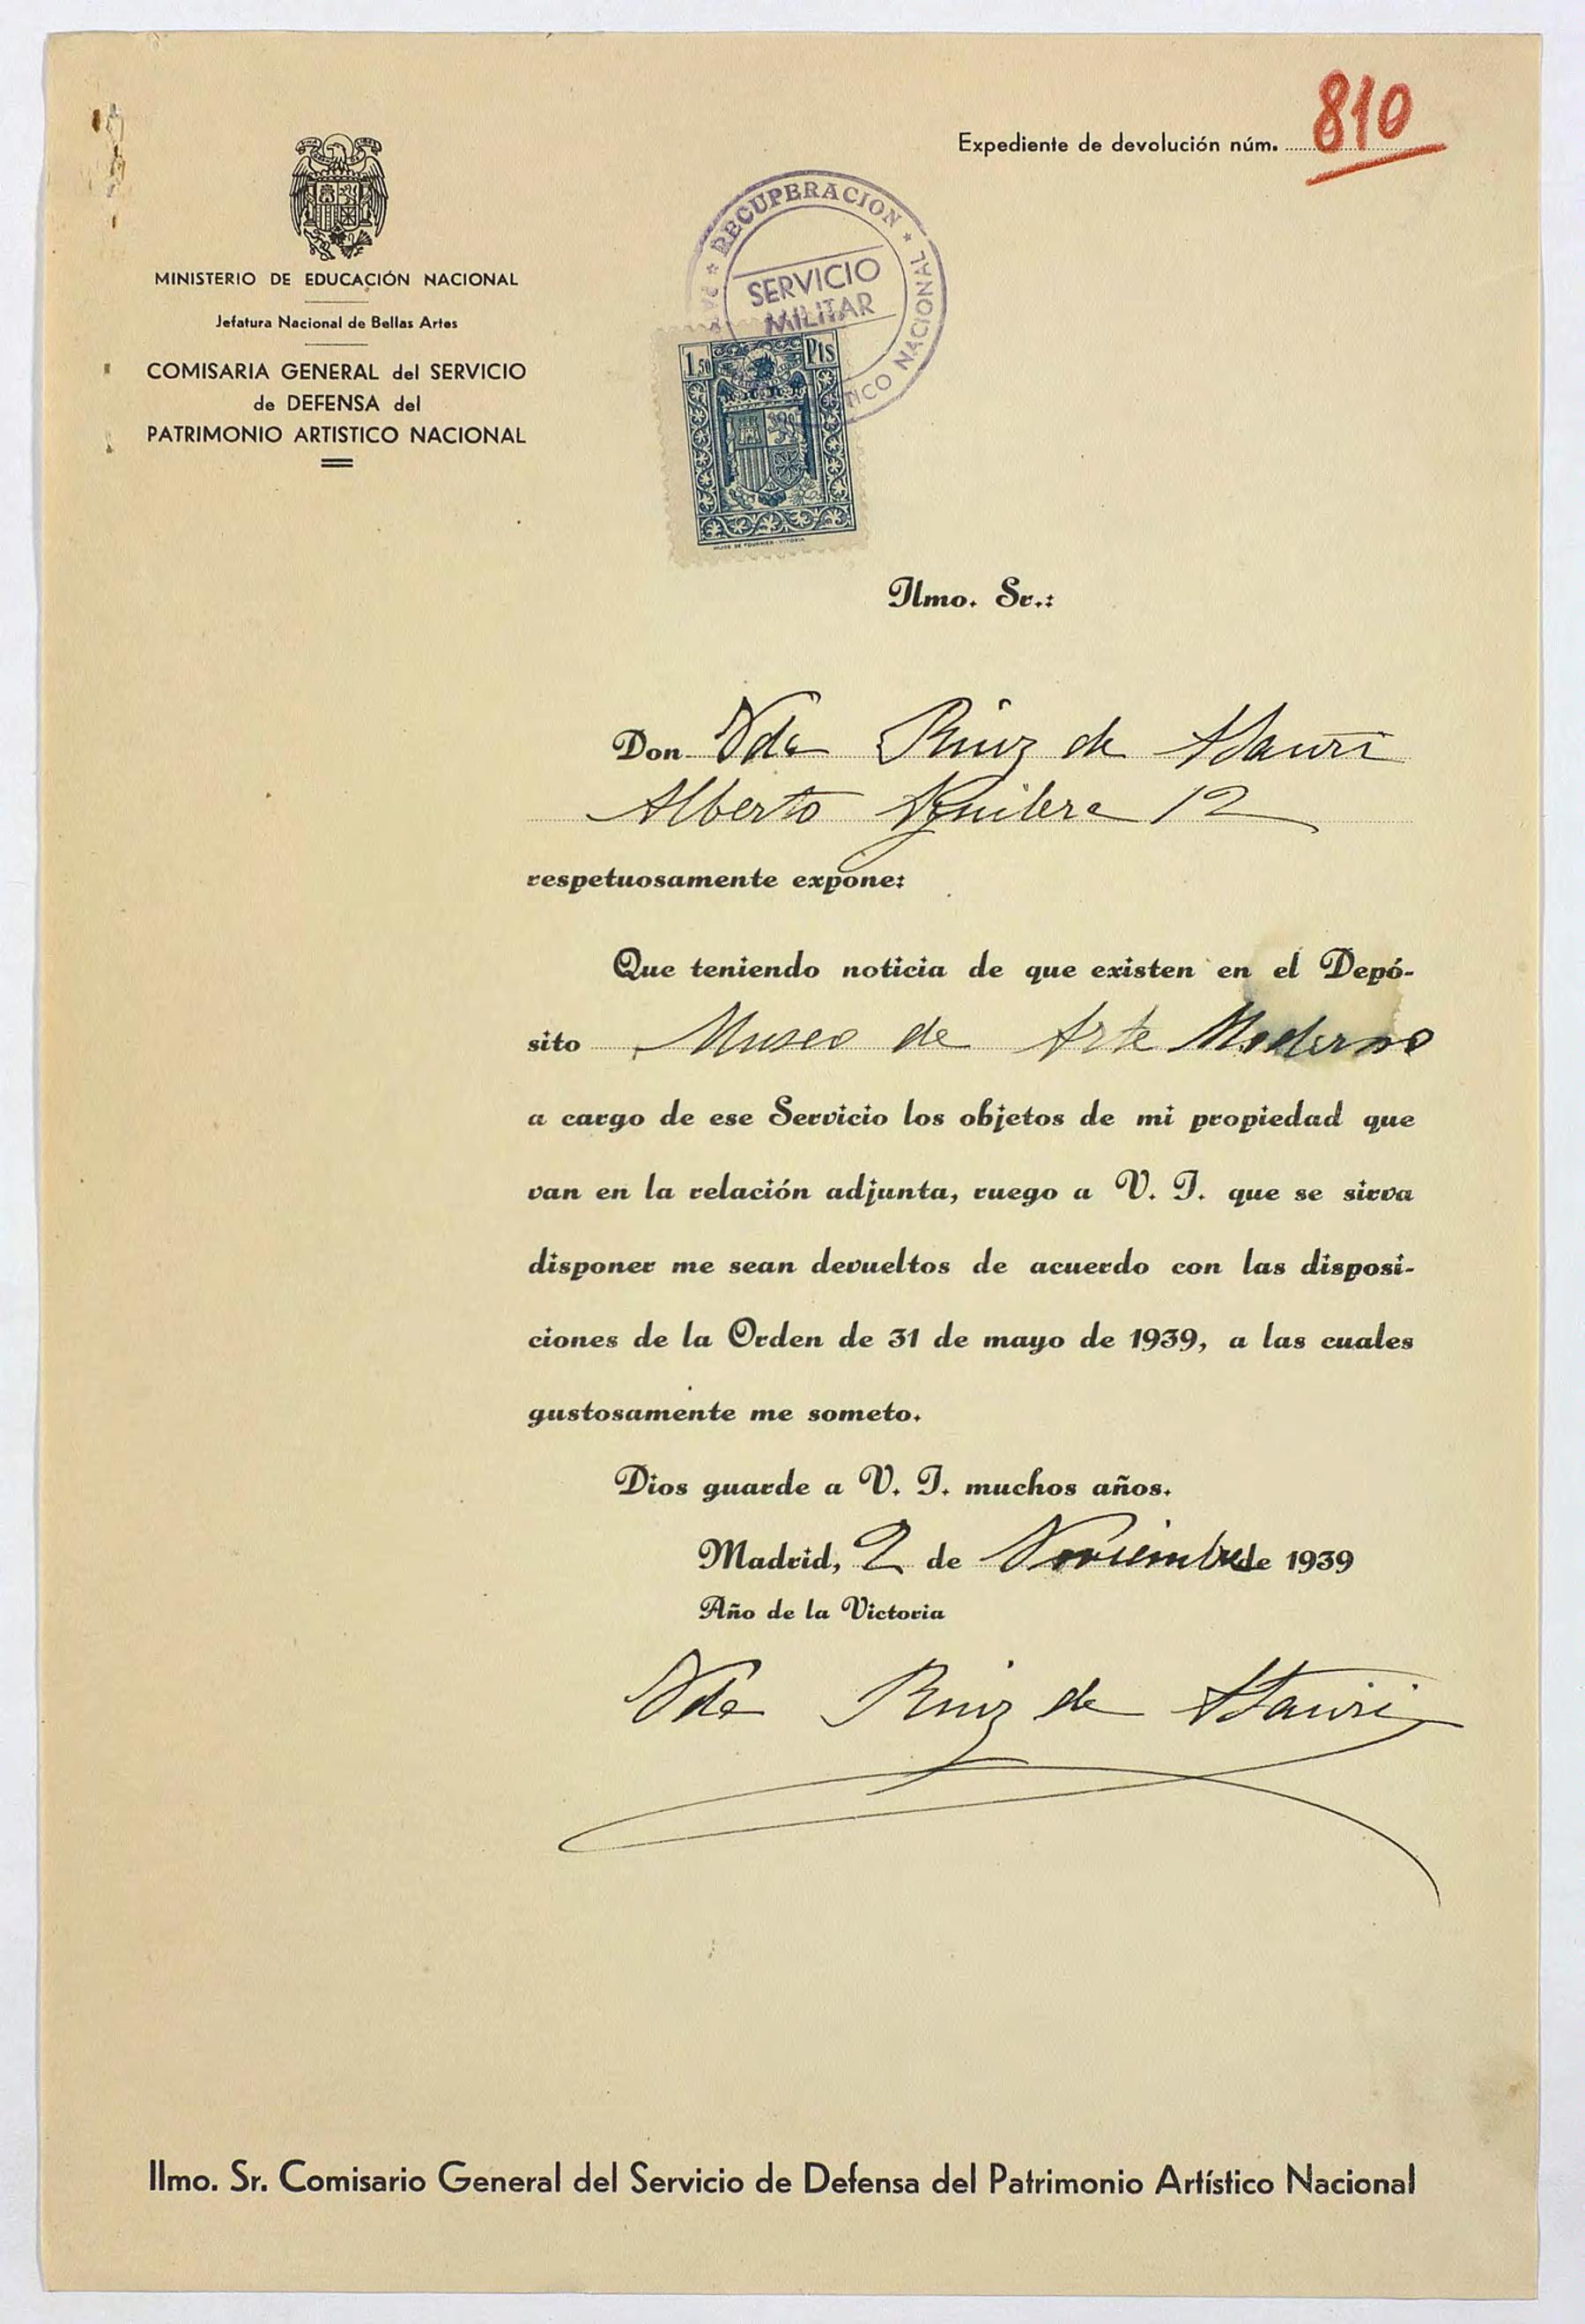 Expediente de devolución núm. 810
MINISTERIO DE EDUCACIÓN NACIONAL
Jefatura Nacional de Bellas Artes
COMISARIA GENERAL del SERVICIO
de DEFENSA del
PATRIMONIO ARTISTICO NACIONAL
RECUPERACION
SERVICIO
MILITAR
TICO NACIONAL
1,50 Pts
HIJOS DE FOURNIER - VITORIA
Ilmo. Sr.:
Don Vda Ruiz de
Alberto Aguilera 12
respetuosamente expone:
Que teniendo noticia de que existen en el Depó-
sito Museo de Arte Moderno
a cargo de ese Servicio los objetos de mi propiedad que
van en la relación adjunta, ruego a V. I. que se sirva
disponer me sean devueltos de acuerdo con las disposi-
ciones de la Orden de 31 de mayo de 1939, a las cuales
gustosamente me someto.
Dios guarde a V. I. muchos años.
Madrid, 2 de Noviembre de 1939
Año de la Victoria
Vda Ruiz de
Ilmo. Sr. Comisario General del Servicio de Defensa del Patrimonio Artístico Nacional